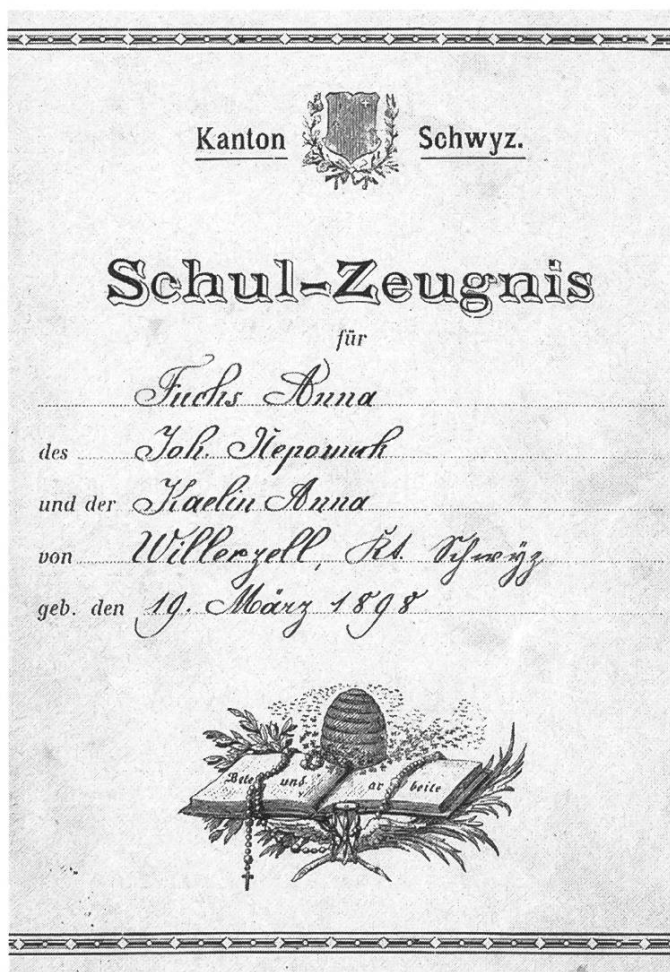 Kanton Schwyz.
Schul-Zeugnis
für
Fuchs Anna
des Joh. Nepomuk
und der Kaelin Anna
von Willerzell, Kt. Schwÿz
geb. den 19. März 1898
Bete und ar beite